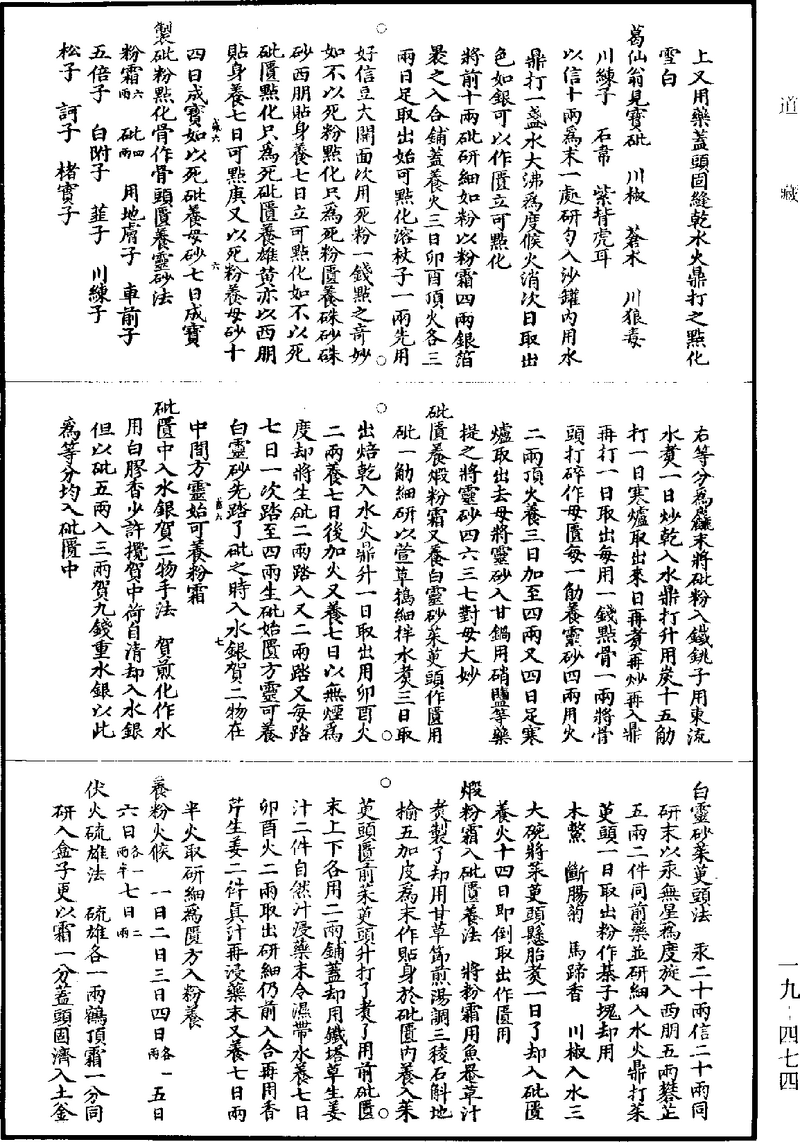 道藏
上又用藥蓋頭固縫乾水火鼎打之點化
雪白
葛仙翁見寶砒　川椒　蒼朮　川狼毒
川練子　石韋　紫背虎耳
以信十兩為末一處研勻入沙罐內用水
鼎打一盞水大沸為度候火消次日取出
色如銀可以作匱立可點化
將前十兩砒研細如粉以粉霜四兩銀箔
裹之入合鋪蓋養火三日卯酉頂火各三
兩日足取出始可點化溶杖子一兩先用
好信豆大開面次用死粉一錢點之奇妙
如不以死粉點化只為死粉匱養硃砂硃
砂西朋貼身養七日立可點化如不以死
砒匱點化只為死砒匱養雄黃亦以西朋
貼身養七日可點庚又以死粉養母砂十
四日成寶如以死砒養母砂七日成寶
製砒粉點化骨作骨頭匱養靈砂法
粉霜六兩　砒四兩　用地膚子　車前子
五倍子　白附子　韮子　川練子
松子　訶子　楮實子
右等分為麤末將砒粉入鐵銚子用東流
水煑一日炒乾入水鼎打升用炭十五觔
打一日寒爐取出來日再煑再炒再入鼎
再打一日取出每用一錢點骨一兩將骨
頭打碎作母匱每一觔養靈砂四兩用火
二兩頂火養三日加至四兩又四日足寒
爐取出去母將靈砂入甘鍋用硝鹽等藥
提之將靈砂四六三七對母大妙
砒匱養煆粉霜又養白靈砂菜萸頭作匱用
砒一觔細研以萱草搗細拌水煑三日取
出焙乾入水火鼎升一日取出用卯酉火
二兩養七日後加火又養七日以無煙為
度却將生砒二兩踏入又二兩踏又每踏
七日一次踏至四兩生砒始匱方靈可養
白靈砂先踏了砒之時入水銀賀二物在
中間方靈始可養粉霜
砒匱中入水銀賀二物手法　賀煎化作水
用白膠香少許攪賀中荷自清却入水銀
但以砒五兩入三兩賀九錢重水銀以此
為等分均入砒匱中
白靈砂菜萸頭法　汞二十兩信二十兩同
研末以汞無星為度旋入西朋五兩礬芷
五兩二件同前藥並研細入水火鼎打菜
萸頭一日取出粉作棊子塊却用
木鱉　斷腸蒭　馬蹄香　川椒入水三
大碗將菜萸頭懸胎煑一日了却入砒匱
養火十四日即倒取出作匱用
煆粉霜入砒匱養法　將粉霜用魚罨草汁
煑製了却用甘草節煎湯調三稜石斛地
榆五加皮為末作貼身於砒匱內養入菜
萸頭匱前菜萸頭升打了煑了用前砒匱
末上下各用二兩鋪蓋却用鐵塔草生姜
汁二件自然汁浸藥末令濕帶水養七日
卯酉火二兩取出研細仍前入合再用香
芹生姜二件真汁再浸藥末又養七日兩
半火取研細為匱方入粉養
養粉火候　一日二日三日四日各一兩　五日
六日各一兩半　七日二兩
伏火硫雄法　硫雄各一兩鶴頂霜一分同
研入盒子更以霜一分蓋頭固濟入土釜
一九-四七四